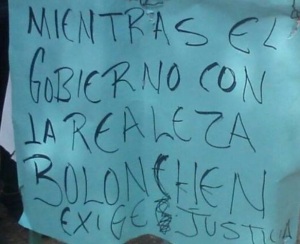 MIENTRAS EL
GOBIERNO CON
LA REALEZA
BOLONCHEN
EXIGE JUSTICIA